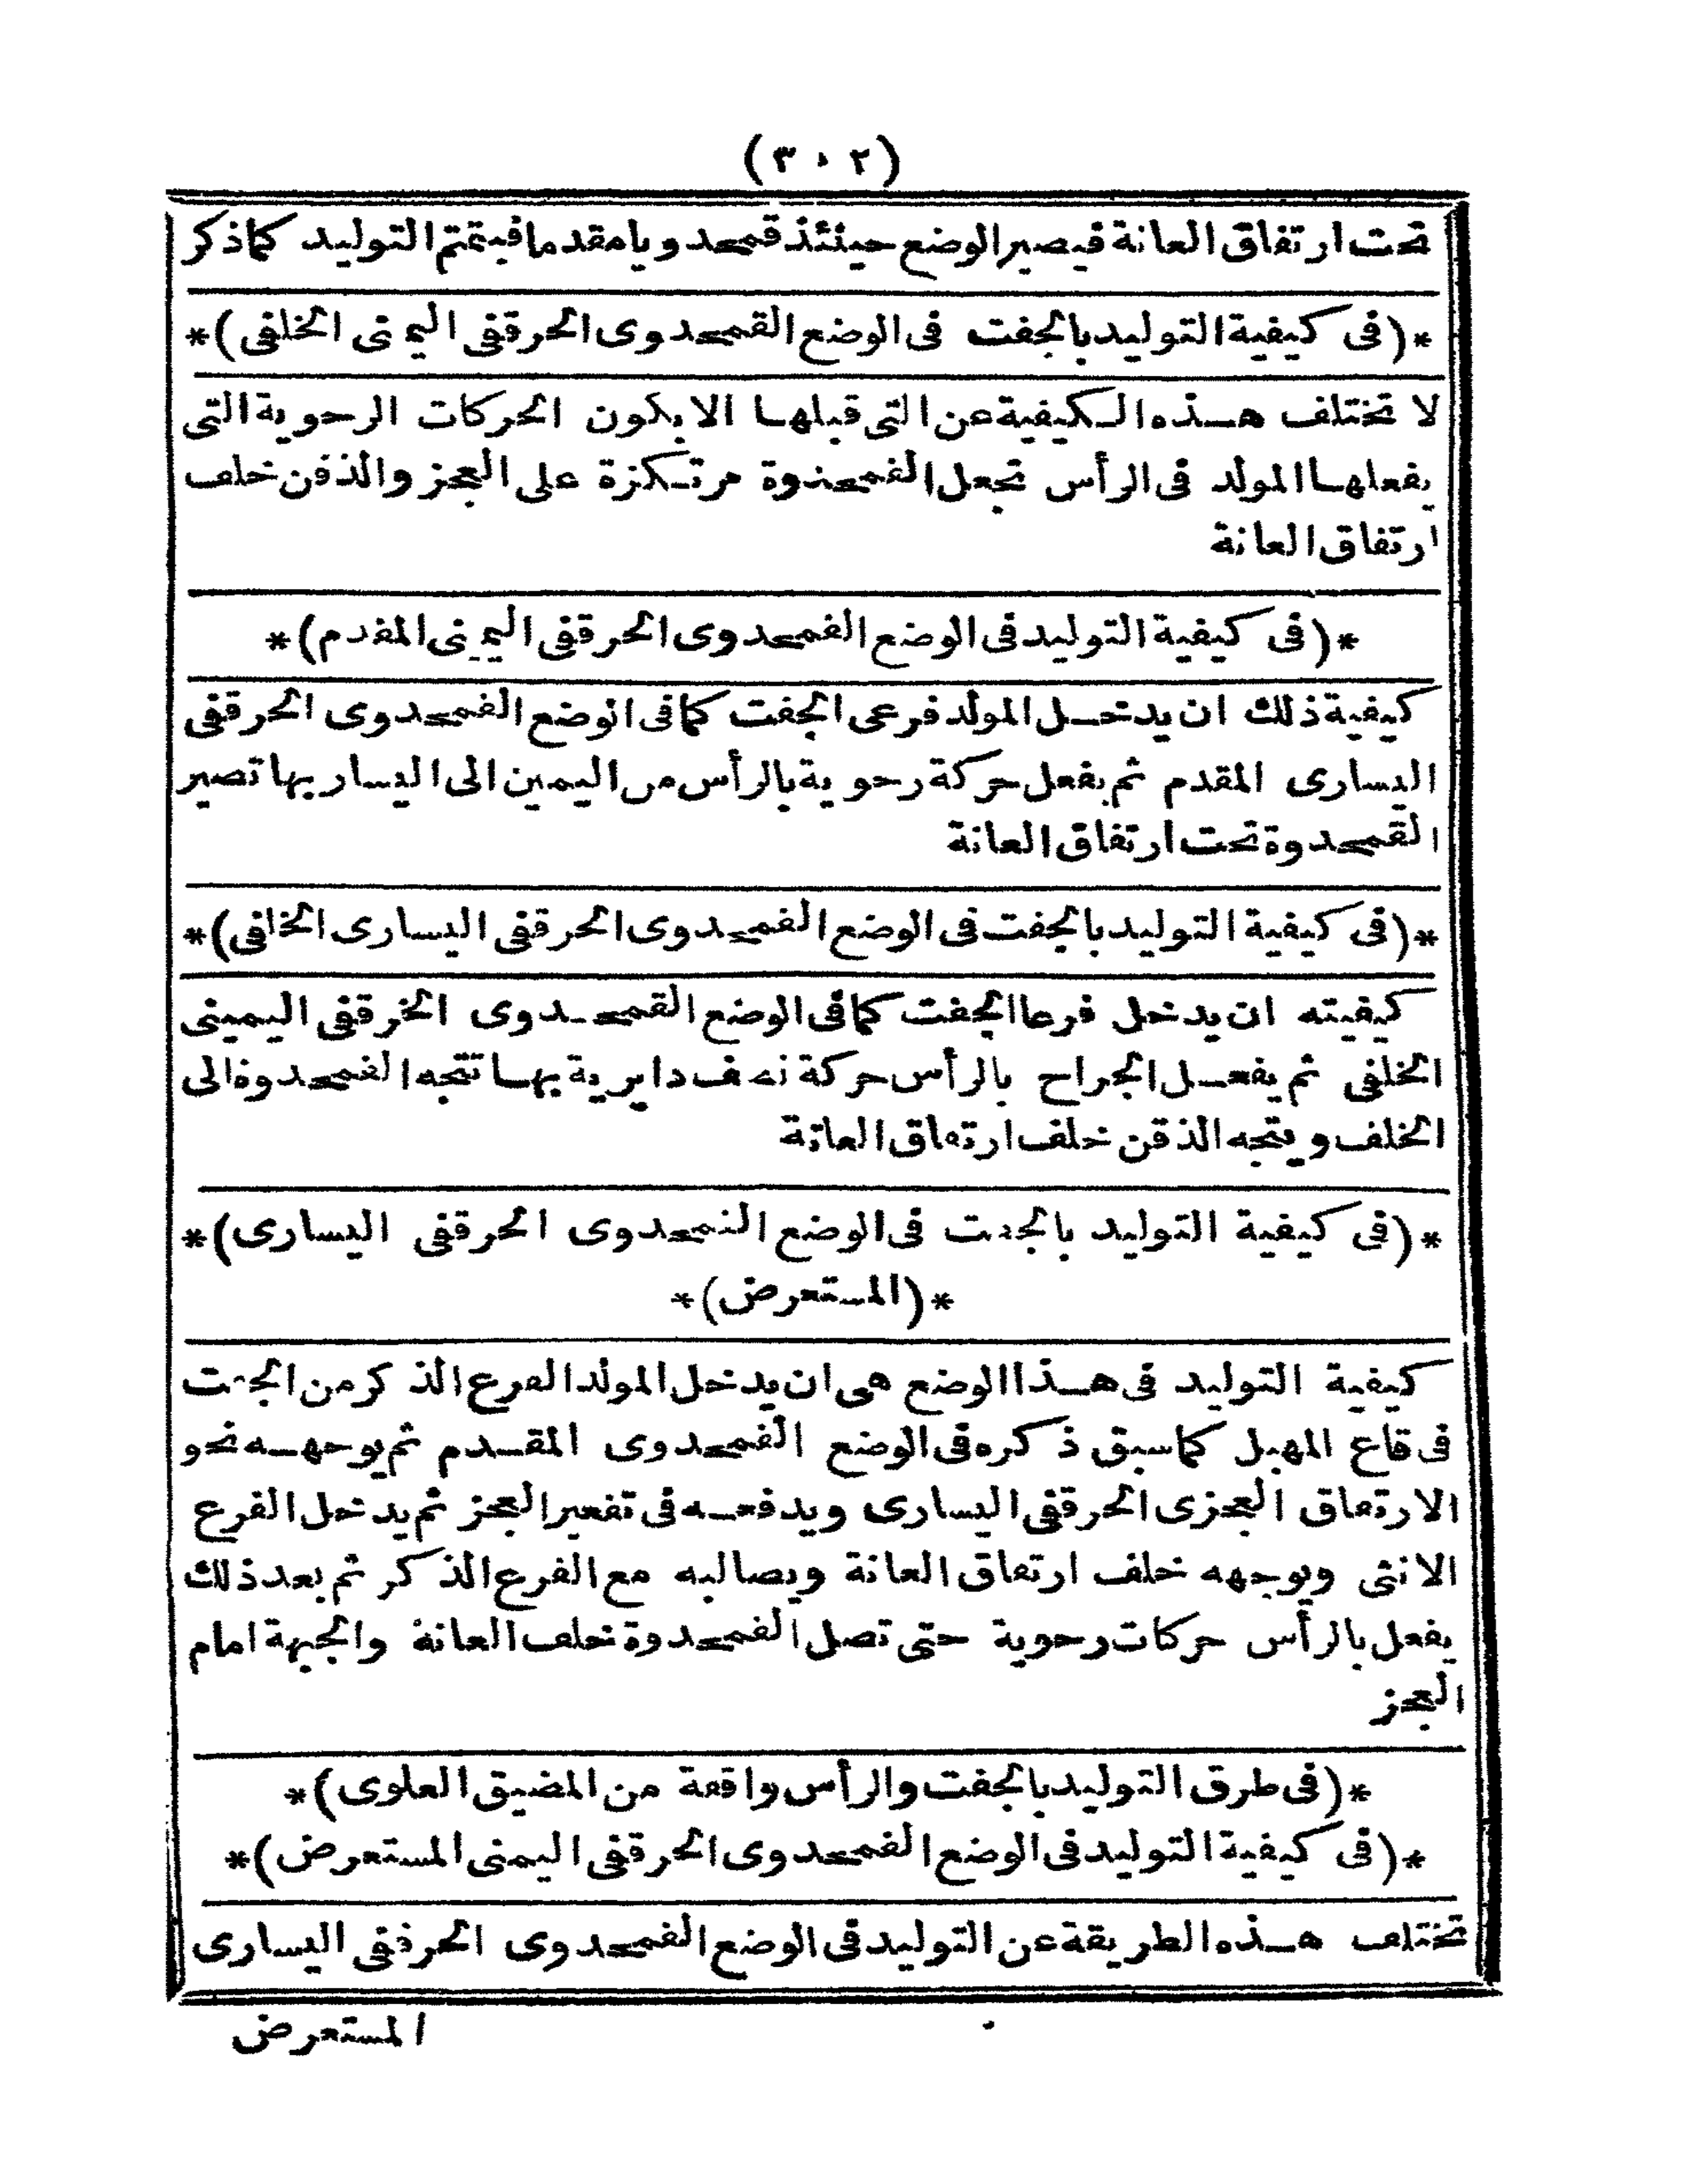 (٣٠٢)
تحت ارتفاق العانة فيصير الوضع حينئذ قمحدويا مقدما فيتمم التوليد كما ذكر
*(فى كيفية التوليد بالجفت فى الوضع القمحدوى الحرقفى اليمنى الخلفى)*
لا تختلف هذه الكيفية عن التى قبلها الا بكون الحركات الرحوية التى
يفعلها المولد فى الرأس تجعل القمحدوة مرتكزة على العجز والذقن خلف
ارتفاق العانة
*(فى كيفية التوليد فى الوضع القمحدوى الحرقفى اليمينى المقدم)*
كيفية ذلك ان يدخل المولد فرعى الجفت كما فى الوضع القمحدوى الحرقفى
اليسارى المقدم ثم يفعل حركة رحوية بالرأس من اليمين الى اليسار بها تصير
القمحدوة تحت ارتفاق العانة
*(فى كيفية التوليد بالجفت فى الوضع القمحدوى الحرقفى اليسارى الخلفى)*
كيفيته ان يدخل فرعا الجفت كما فى الوضع القمحدوى الخرقفى اليمينى
الخلفى ثم يفعل الجراح بالرأس حركة نصف دايرية بها تتجه القمحدوة الى
الخلف ويتجه الذقن خلف ارتفاق العانة
*(فى كيفية التوليد بالجفت فى الوضع القمحدوى الحرقفى اليسارى)*
*(المستعرض)*
كيفية التوليد فى هذا الوضع هى ان يدخل المولد الفرع الذكر من الجفت
فى قاع المهبل كما سبق ذكره فى الوضع القمحدوى المقدم ثم يوجهه نحو
الارتفاق العجزى الحرقفى اليسارى ويدفعه فى تقعير العجز ثم يدخل الفرع
الانثى ويوجهه خلف ارتفاق العانة ويصالبه مع الفرع الذكر ثم بعد ذلك
يفعل بالرأس حركات رحوية حتى تصل القمحدوة خلف العانة والجبهة امام
العجز
*(فى طرق التوليد بالجفت والرأس واقعة من المضيق العلوى)*
*(فى كيفية التوليد فى الوضع القمحدوى الحرقفى اليمنى المستعرض)*
تختلف هذه الطريقة عن التوليد فى الوضع القمحدوى الحرقفى اليسارى
المستعرض